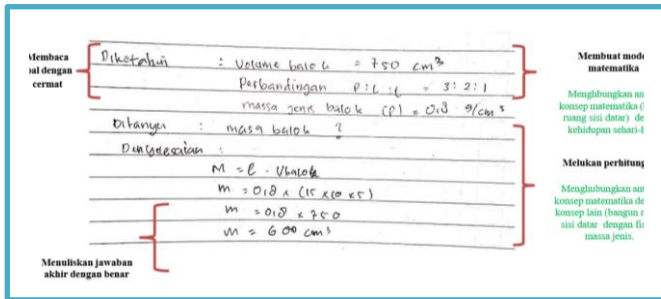 Membaca
al dengan
cermat
Diketahui : Volume balok = 750 cm³
Perbandingan P : L : t = 3 : 2 : 1
massa jenis balok (ρ) = 0,8 g/cm³
Ditanya : masa balok ?
Penyelesaian :
M = ρ . Vbalok
m = 0,8 x (15 x 10 x 5)
m = 0,8 x 750
m = 600 cm³
Menuliskan jawaban
akhir dengan benar
Membuat mode
matematika
Menghbungkan an
konsep matematika (
ruang sisi datar) de
kehidupan sehari-h
Melukan perhitung
Menghubungkan ant
konsep matematika de
konsep lain (bangun r
sisi datar dengan fi
massa jenis.